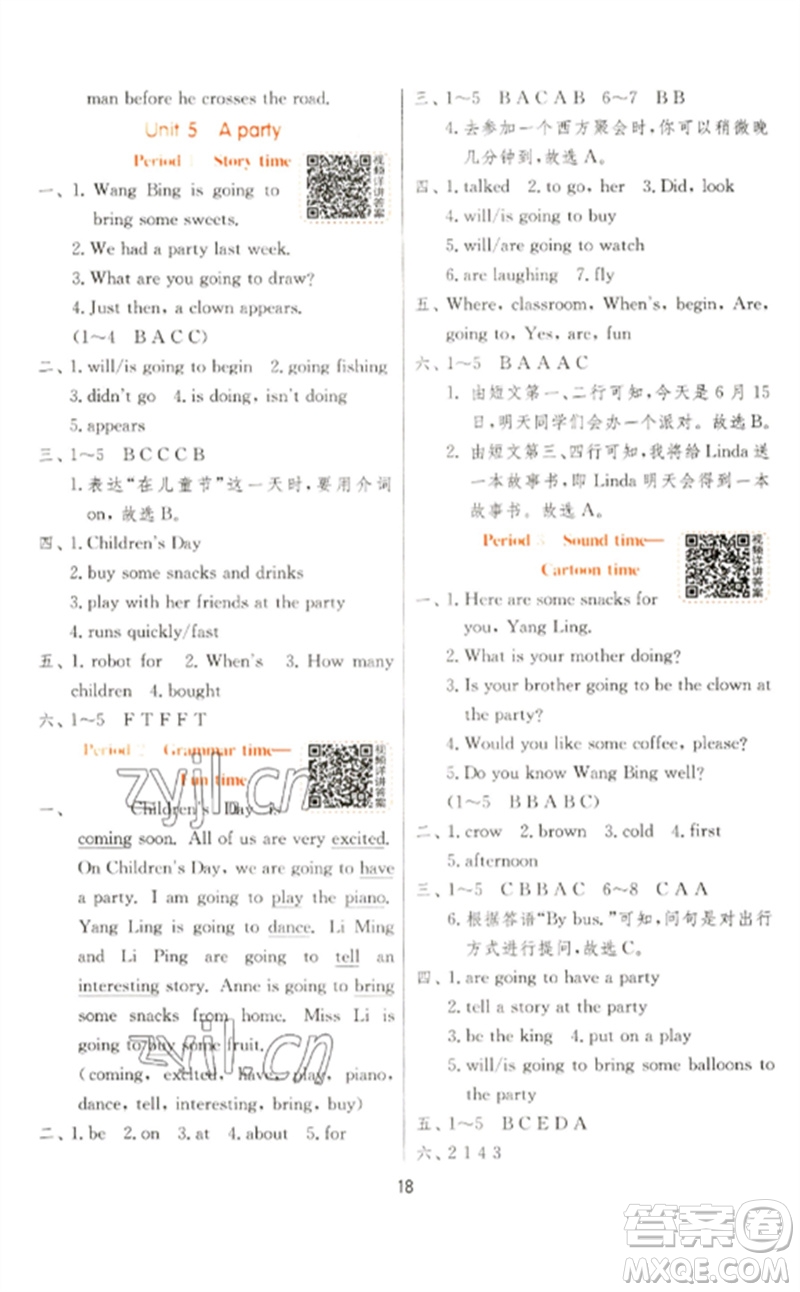 man before he crosses the road.
Unit 5 A party
Period 1 Story time
视频详讲答案
一、1. Wang Bing is going to
bring some sweets.
2. We had a party last week.
3. What are you going to draw?
4. Just then, a clown appears.
(1～4 B A C C)
二、1. will/is going to begin 2. going fishing
3. didn't go 4. is doing, isn't doing
5. appears
三、1～5 B C C C B
1. 表达“在儿童节”这一天时,要用介词
on,故选 B。
四、1. Children's Day
2. buy some snacks and drinks
3. play with her friends at the party
4. runs quickly/fast
五、1. robot for 2. When's 3. How many
children 4. bought
六、1～5 F T F F T
Period 2 Grammar time—
Fun time
视频详讲答案
一、 Children's Day is
coming soon. All of us are very excited.
On Children's Day, we are going to have
a party. I am going to play the piano.
Yang Ling is going to dance. Li Ming
and Li Ping are going to tell an
interesting story. Anne is going to bring
some snacks from home. Miss Li is
going to buy some fruit.
(coming, excited, have, play, piano,
dance, tell, interesting, bring, buy)
二、1. be 2. on 3. at 4. about 5. for
三、1～5 B A C A B 6～7 B B
4. 去参加一个西方聚会时,你可以稍微晚
几分钟到,故选 A。
四、1. talked 2. to go, her 3. Did, look
4. will/is going to buy
5. will/are going to watch
6. are laughing 7. fly
五、Where, classroom, When's, begin, Are,
going to, Yes, are, fun
六、1～5 B A A A C
1. 由短文第一、二行可知,今天是 6 月 15
日,明天同学们会办一个派对。故选 B。
2. 由短文第三、四行可知,我将给 Linda 送
一本故事书,即 Linda 明天会得到一本
故事书。故选 A。
Period 3 Sound time—
Cartoon time
视频详讲答案
一、1. Here are some snacks for
you, Yang Ling.
2. What is your mother doing?
3. Is your brother going to be the clown at
the party?
4. Would you like some coffee, please?
5. Do you know Wang Bing well?
(1～5 B B A B C)
二、1. crow 2. brown 3. cold 4. first
5. afternoon
三、1～5 C B B A C 6～8 C A A
6. 根据答语“By bus.”可知,问句是对出行
方式进行提问,故选 C。
四、1. are going to have a party
2. tell a story at the party
3. be the king 4. put on a play
5. will/is going to bring some balloons to
the party
五、1～5 B C E D A
六、2 1 4 3
18
zyjl.cn
zyjl.cn
答案卷
MXQE.COM